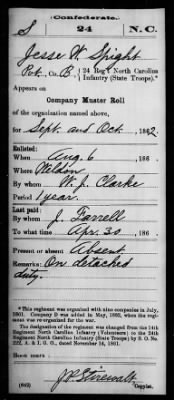 Confederate.
S 24 N.C.
Jesse W. Spight
Pvt., Co. B, 24 Reg't North Carolina
Infantry (State Troops).*
Appears on
Company Muster Roll
of the organization named above,
for Sept. and Oct., 1862.
Enlisted:
When Aug. 6, 186 .
Where Weldon
By whom W. J. Clarke
Period 1 year.
Last paid:
By whom J. Farrell
To what time Apr. 30, 186 .
Present or absent Absent.
Remarks: On detached
duty.
*This regiment was organized with nine companies in July,
1861. Company D was added in May, 1862, when the regi-
ment was re-organized for the war.
The designation of the regiment was changed from the 14th
Regiment North Carolina Infantry (Volunteers) to the 24th
Regiment North Carolina Infantry (State Troops) by S. O. No.
222, A. & I. G. O., dated November 14, 1861.
Book mark:
(642) J P Stirewalt
Copyist.